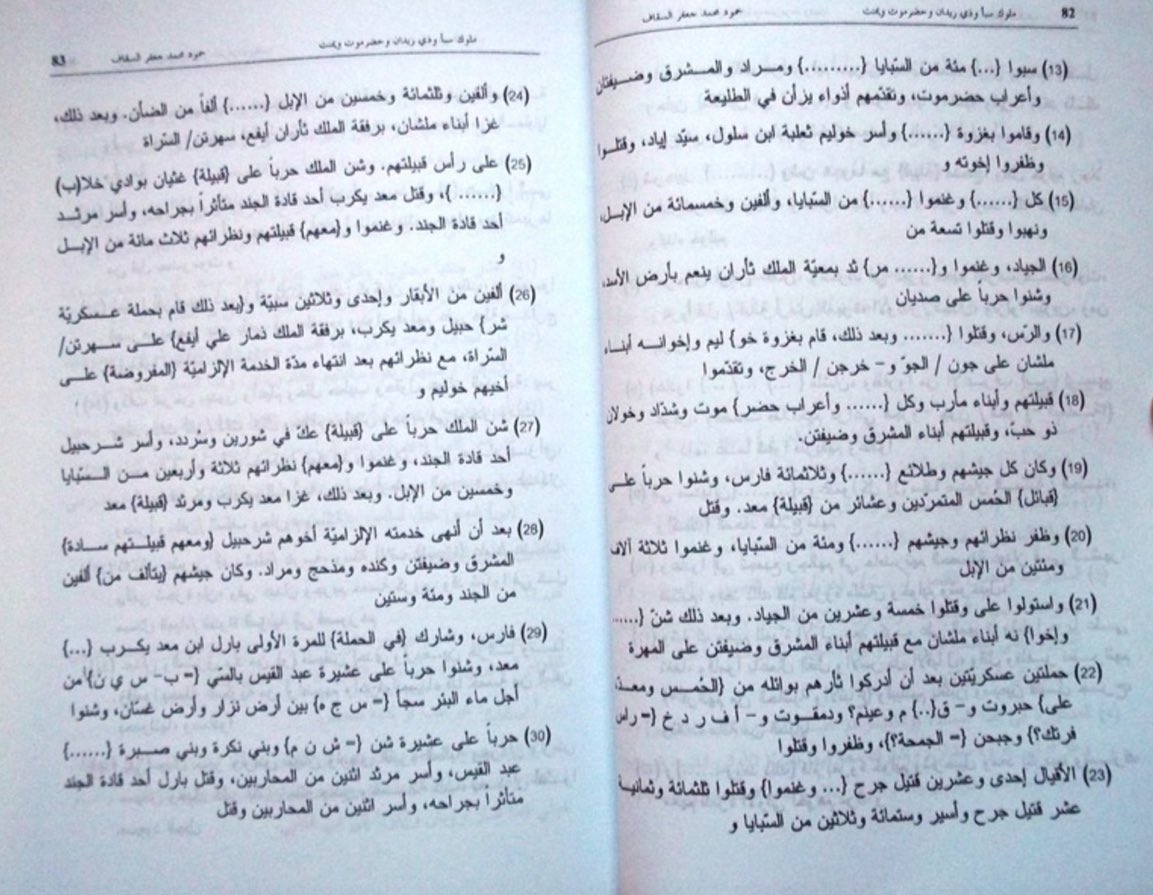 82 ملوك سبأ وذي ريدان وحضرموت ويمنت حمود محمد جعفر السقاف
(13) سبوا {...} مئة من السّبايا {.........} ومراد والمشرق وضيفتن
وأعراب حضرموت، وتقدّمهم أذواء يزأن في الطليعة
(14) وقاموا بغزوة {......} وأسر خوليم ثعلبة ابن سلول، سيّد إياد، وقتلوا
وظفروا إخوته و
(15) كل {......} وغنموا {......} من السّبايا، وألفين وخمسمائة من الإبل،
ونهبوا وقتلوا تسعة من
(16) الجياد، وغنموا و{...... مر} ثد بمعيّة الملك ثأران ينعم بأرض الأسد
وشنوا حرباً على صديان
(17) والرّس، وقتلوا {....... وبعد ذلك، قام بغزوة خو} ليم وإخوانه أبناء
ملشان على جون / الجوّ و- خرجن / الخرج، وتقدّموا
(18) قبيلتهم وأبناء مأرب وكل {...... وأعراب حضر} موت وشدّاد وخولان
ذو حبّ، وقبيلتهم أبناء المشرق وضيفتن.
(19) وكان كل جيشهم وطلائع {......} وثلاثمائة فارس، وشنوا حرباً على
{قبائل} الحُمس المتمرّدين وعشائر من {قبيلة} معد. وقتل
(20) وظفر نظرائهم وجيشهم {......} ومئة من السّبايا، وغنموا ثلاثة آلاف
ومئتين من الإبل
(21) واستولوا على وقتلوا خمسة وعشرين من الجياد. وبعد ذلك شنّ {......
وإخوا} نه أبناء ملشان مع قبيلتهم أبناء المشرق وضيفتن على المهرة
(22) حملتين عسكريّتين بعد أن أدركوا ثأرهم بوائله من {الحُمس ومعد،
على} حبروت و- ق{..} م وعينم؟ ودمقوت و- أ ف ر د خ {= راس
فرتك؟} وجبحن {= الجمحة؟}، وظفروا وقتلوا
(23) الأقيال إحدى وعشرين قتيل جرح {... وغنموا} وقتلوا ثلثمائة وثمانية
عشر قتيل جرح وأسير وستمائة وثلاثين من السّبايا و
ملوك سبأ وذي ريدان وحضرموت ويمنت حمود محمد جعفر السقاف 83
(24) وألفين وثلثمائة وخمسين من الإبل {......} ألفاً من الضأن. وبعد ذلك،
غزا أبناء ملشان، برفقة الملك ثأران أيفع، سهرتن/ السّراة
(25) على رأس قبيلتهم. وشن الملك حرباً على {قبيلة} غثيان بوادي خلا(ب)
{...... }، وقتل معد يكرب أحد قادة الجند متأثراً بجراحه، وأسر مرثد
أحد قادة الجند. وغنموا و{معهم} قبيلتهم ونظرائهم ثلاث مائة من الإبل
و
(26) ألفين من الأبقار وإحدى وثلاثين سبيّة و{بعد ذلك قام بحملة عسكريّة
شر} حبيل ومعد يكرب، برفقة الملك نمار علي أيفع} على سهرتن/
السّراة، مع نظرائهم بعد انتهاء مدّة الخدمة الإلزاميّة {المفروضة} على
أخيهم خوليم و
(27) شن الملك حرباً على {قبيلة} عكّ في شورين وسردد، وأسر شرحبيل
أحد قادة الجند، وغنموا و{معهم} نظرائهم ثلاثة وأربعين من السّبايا
وخمسين من الإبل. وبعد ذلك، غزا معد يكرب ومرثد {قبيلة} معد
(28) بعد أن أنهى خدمته الإلزاميّة أخوهم شرحبيل {ومعهم قبيلتهم سادة}
المشرق وضيفتن وكنده ومذحج ومراد. وكان جيشهم {يتألف من} ألفين
من الجند ومئة وستين
(29) فارس، وشارك {في الحملة} للمرة الأولى بارل ابن معد يكرب {...}
معد، وشنوا حرباً على عشيرة عبد القيس بالسي {= ب- س ي ن} من
أجل ماء البئر سجأ {= س ج ه} بين أرض نزار وأرض غسّان، وشنوا
(30) حرباً على عشيرة شن {= ش ن م} وبني نكرة وبني صبرة {......}
عبد القيس، وأسر مرثد اثنين من المحاربين، وقتل بارل أحد قادة الجند
متأثرا بجراحه، وأسر اثنين من المحاربين وقتل